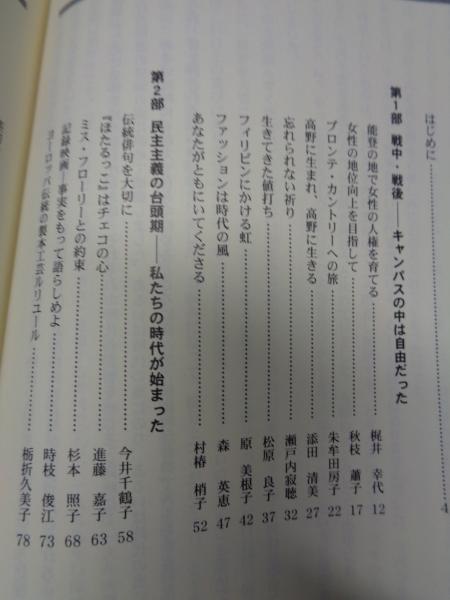 はじめに 4
第1部 戦中・戦後――キャンパスの中は自由だった
能登の地で女性の人権を育てる 梶井 幸代 12
女性の地位向上を目指して 秋枝 蕭子 17
ブロンテ・カントリーへの旅 朱牟田房子 22
高野に生まれ、高野に生きる 添田 清美 27
忘れられない祈り 瀬戸内寂聴 32
生きてきた値打ち 松原 良子 37
フィリピンにかける虹 原 美根子 42
ファッションは時代の風 森 英恵 47
あなたがともにいてくださる 村椿 梢子 52
第2部 民主主義の台頭期――私たちの時代が始まった
伝統俳句を大切に 今井千鶴子 58
『ほたるっこ』はチェコの心 進藤 嘉子 63
ミス・フローリーとの約束 杉本 照子 68
記録映画―事実をもって語らしめよ 時枝 俊江 73
ヨーロッパ伝統の製本工芸ルリユール 栃折久美子 78